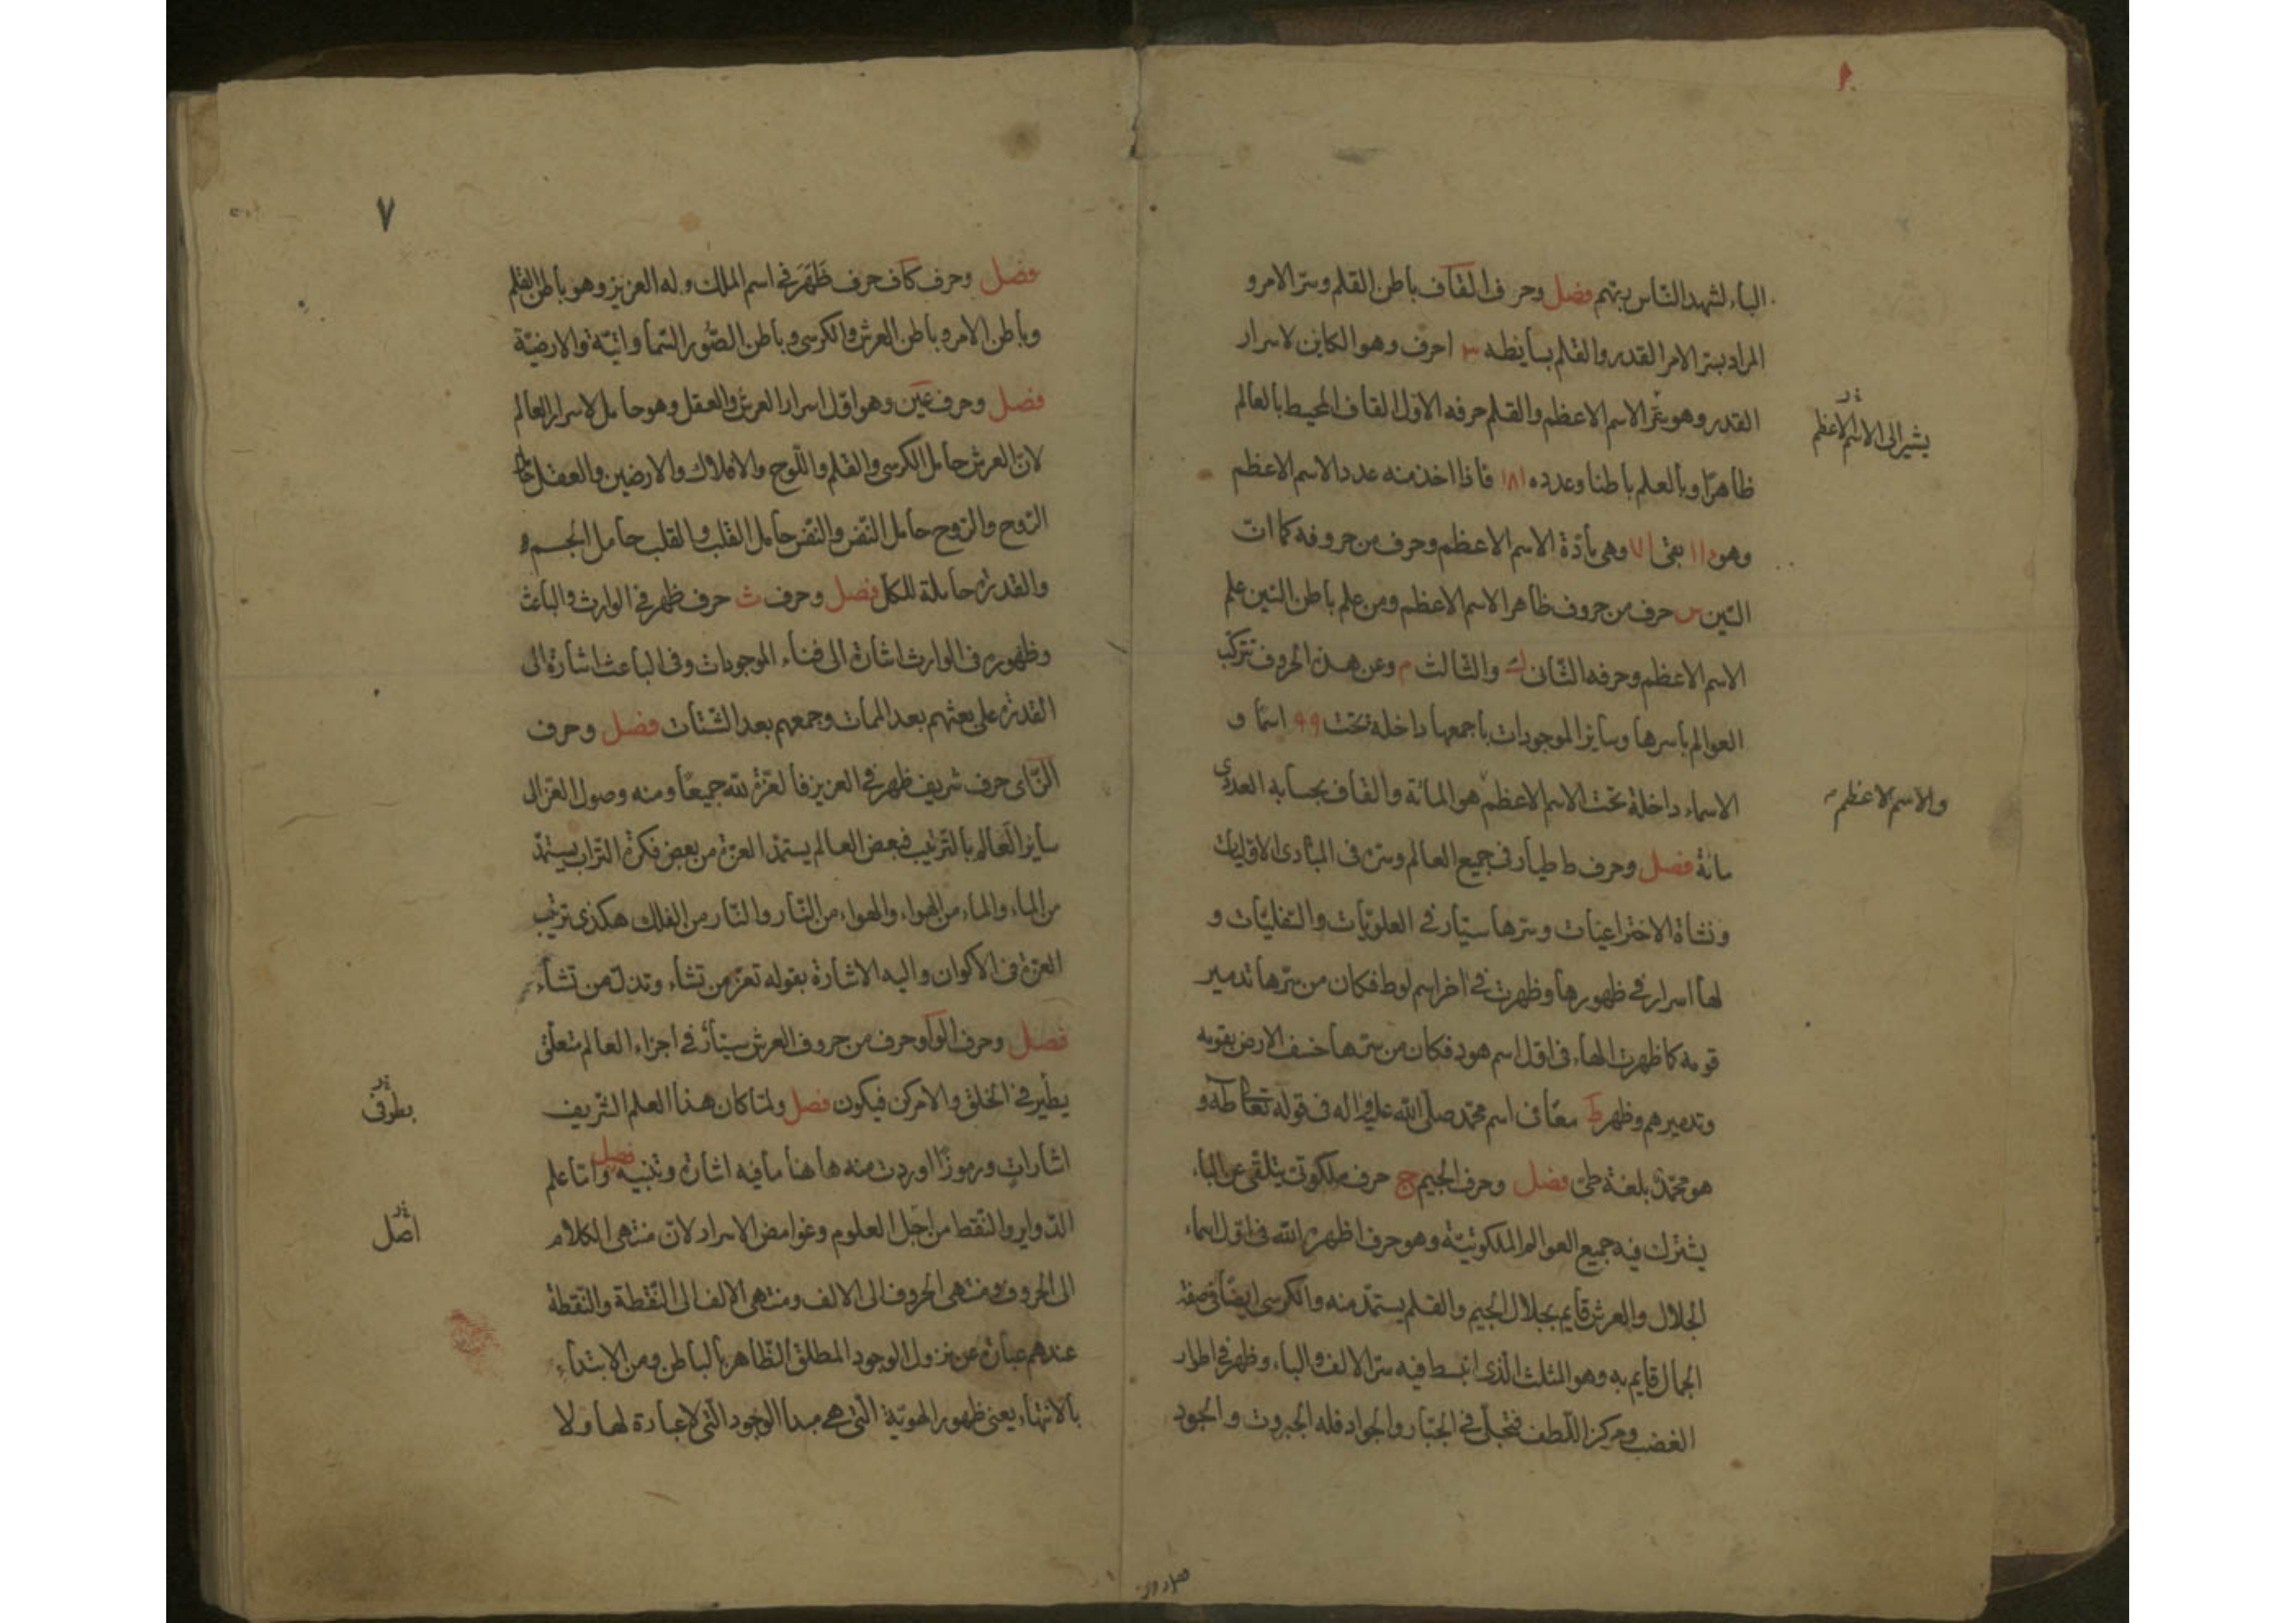 الباء لتشهد الناس ربهم فصل وحرف القاف باطن القلم وسر الامر و
المراد بسر الامر القدر والقلم بسايطه ٣ احرف وهو الكاين لاسرار
القدر وهو سر الاسم الاعظم والقلم حرفه الاول القاف المحيط بالعالم
يشير الى الاسم الاعظم
ظاهرا وبالعلم باطنا وعدده ١٨١ فاذا اخذ منه عدد الاسم الاعظم
وهو ١١٠ بقى ٧١ وهى مادة الاسم الاعظم وحرف من حروفه كما ان
السين س حرف من حروف ظاهر الاسم الاعظم ومن علم باطن السين علم
الاسم الاعظم وحرفه الثانى ل والثالث م وعن هذه الحروف تتركب
العوالم باسرها وساير الموجودات باجمعها داخلة تحت ٩٩ اسما و
الاسماء داخلة تحت الاسم الاعظم هو المائة والقاف بحسابه العددى
والاسم الاعظم
مائة فصل وحرف ط طيار فى جميع العالم وسره فى المبادى الاوليات
ونشاة الاختراعيات وسرها سيار فى العلويات والسفليات و
لها اسرار فى ظهورها وظهرت فى اخر اسم لوط فكان من سرها تدمير
قومه كما ظهرت الهاء فى اول اسم هود فكان من سرها خسف الارض بقومه
وتدميرهم وظهر ط معا فى اسم محمد صلى الله عليه واله فى قوله تعالى طه و
هو محمد بلغة طى فصل وحرف الجيم ج حرف ملكوتى يتلقى عن الباء
يشترك فيه جميع العوالم الملكوتية وهو حرف اظهره الله فى اول اسماء
الجلال والعرش قايم بجلال الجيم والقلم يستمد منه والكرسى ايضا وصفة
الجمال قايم به وهو المثلث الذى انبسط فيه سر الالف والباء وظهر فى اطوار
الغضب ومركز اللطف فتجلى فى الجبار والجواد فله الجبروت والجود
٧
فصل وحرف كاف حرف ظهر فى اسم الملك وله العزيز وهو باطن القلم
وباطن الامر وباطن العرش والكرسى وباطن الصور السماواتية والارضية
فصل وحرف عين وهو اول اسرار العرش والعقل وهو حامل لاسرار العالم
لان العرش حامل الكرسى والقلم واللوح والافلاك والارضين والعقل حامل
الروح والروح حامل النفس والنفس حامل القلب والقلب حامل الجسم و
والقدرة حاملة للكل فصل وحرف ث حرف ظهر فى الوارث والباعث
وظهوره فى الوارث اشارة الى فناء الموجودات وفى الباعث اشارة الى
القدرة على بعثهم بعد الممات وجمعهم بعد الشتات فصل وحرف
الزاى حرف شريف ظهر فى العزيز فالعزة لله جميعا ومنه وصول العز الى
ساير العالم بالترتيب فبعض العالم يستمد العزة من بعض فكرة التراب يستمد
من الماء والماء من الهواء والهواء من النار والنار من الفلك هكذى ترتيب
العزة فى الاكوان واليه الاشارة بقوله تعز من تشاء وتذل من تشاء
فصل وحرف الواو حرف من حروف العرش سيار فى اجزاء العالم متعلق
يطير فى الخلق والامر كن فيكون فصل ولما كان هذا العلم الشريف
بطرفى
اشارات ورموزا اوردت منه هاهنا ما فيه اشارة وتنبيه فصل واما علم
الدواير والنقط من اجل العلوم وغوامض الاسرار لان منتهى الكلام
اصل
الى الحروف ومنتهى الحروف الى الالف ومنتهى الالف الى النقطة والنقطة
عندهم عبارة عن نزول الوجود المطلق الظاهر بالباطن ومن الابتداء
بالانتهاء يعنى ظهور الهوية التى هى مبدا الوجود التى لا عبارة لها ولا